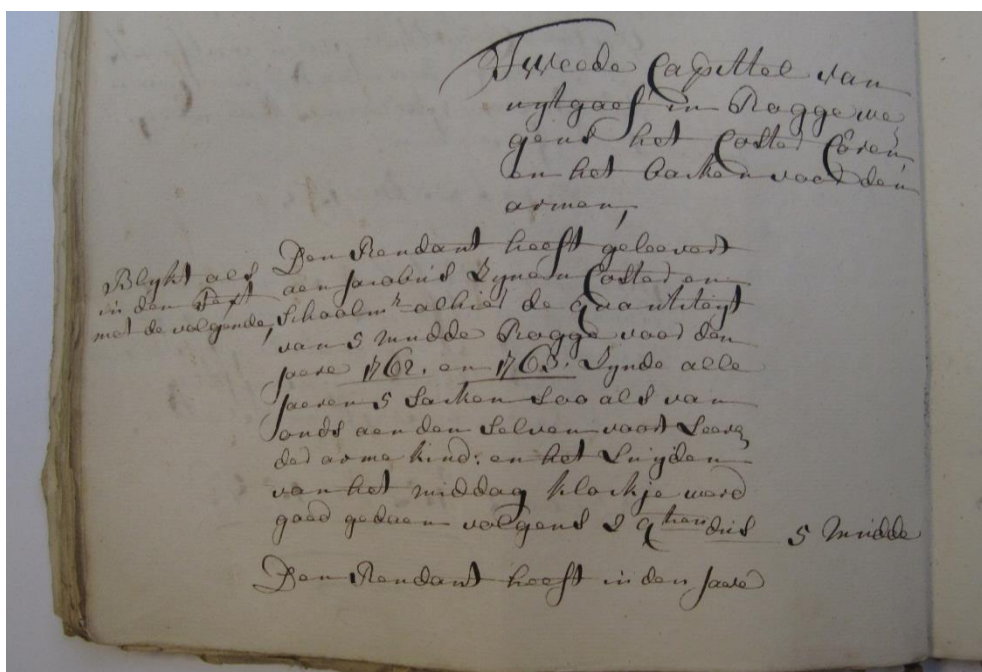 Tweede Capittel van
uytgaef in Rogge we,
gens het Coster Coren,
en het backen voor den
armen,
Blykt als
in den Text
met de volgende,
Den Rendant heeft geleevert
aen Jacobus Coster en
Schoolmr alhier de quantiteyt
van 5 mudde Rogge voor den
jaere 1762. en 1763. Synde alle
jaeren 5 Sacken Soo als van
onds aen den Selven voor 't Leeren
der arme kind: en het Luyden
van het middag klockje werd
goed gedaen volgens 2 qtien dus 5 mudde
Den Rendant heeft in den jaere